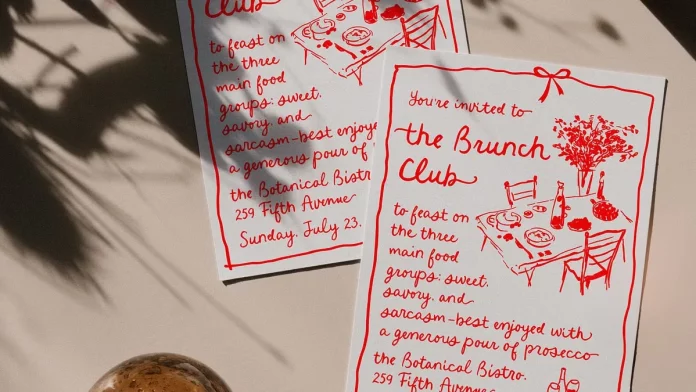 Club
to feast on
the three
main food
groups: sweet,
savory, and
sarcasm–best enjoye
a generous pour of
the Botanical Bistr
259 Fifth Avenue
Sunday, July 23.
You're invited to
the Brunch
Club
to feast on
the three
main food
groups: sweet,
savory, and
sarcasm–best enjoyed with
a generous pour of prosecco
the Botanical Bistro.
259 Fifth Avenue